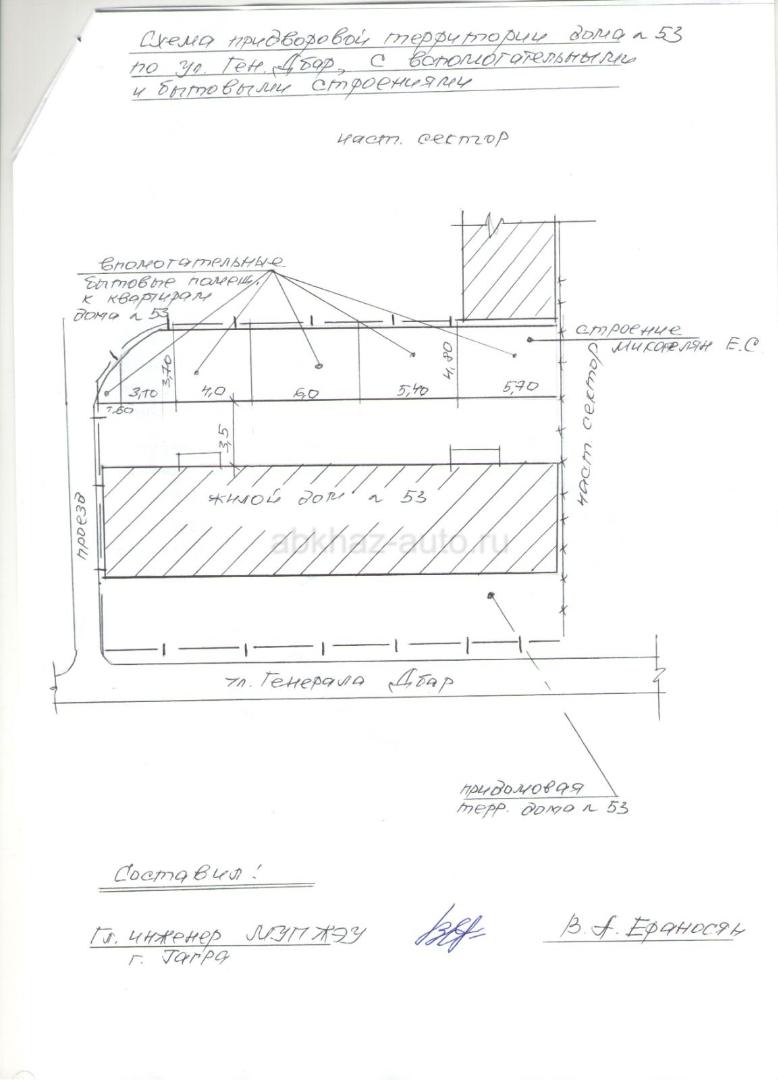 Схема придворовой территории дома № 53
по ул. Ген. Дбар, с вспомогательными
и бытовыми строениями
част. сектор
впомогательные
бытовые помещ.
к квартирам
дома № 53
строение
Микаелян Е.С
3,70
4,80
1.60
3,10
4,0
6,0
5,40
5,70
3,5
част. сектор
жилой дом № 53
проезд
abkhaz-auto.ru
ул. Генерала Дбар
придомовая
терр. дома № 53
Составил:
Гл. инженер МУП ЖЭУ
г. Гагра
В. А. Ераносян